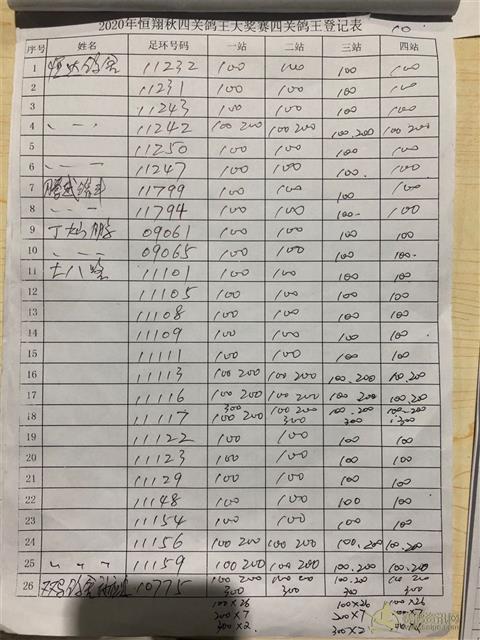 2020年恒翔秋四关鸽王大奖赛四关鸽王登记表
序号 姓名 足环号码 一站 二站 三站 四站
1 11232 100 100 100 100
2 11231 100 100 100 100
3 11243 100 100 100 100
4 11242 100 200 100 200 100.200 100 200
5 11250 100 100 100 100
6 11247 100 100 100. 100
7 11799 100 100 100 100
8 11794 100 100 100. 100
9 丁灿鹏 09061 100 100 100 100
10 09065 100 100 100 100.
11 11101 100 100 100 100
12 11105 100 100 100 100
13 11108 100 100 100 100
14 11109 100 100 100 100
15 11111 100 100 100 100
16 11113 100 200 100 200 100.200 100.200
17 11116 100 200 100 200 100 200 100.200
18 11117 300 100 200 100 200 300 100.200 300 100.200 300
19 11122 100 100 100 100
20 11123 100 100 100 100
21 11129 100 100 100 100
22 11148 100 100 100 100
23 11154 100 100 100 100
24 11156 100 200 100 200 100.200 100.200
25 11159 100 200 100 200 100.200 100.200
26 10775 100 200 300 100 200 300 100.200 300 100.200 300
100×26 100×26 100×26
200×7 200×7
300×2. 300×2